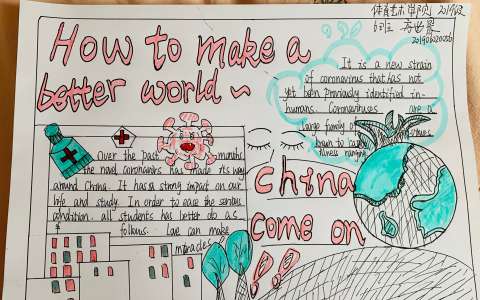 How to make a
better world~
体育艺术学院 2019级
201906020256
It is a new strain
of coronavirus that has not
yet been previously identified in-
humans. Coronaviruses are a
large family of
illness ranging
Over the past months,
the novel coronavirus has made its way
around China. It has a strong impact on our
life and study. In order to ease the serious
condition, all students has better do as
follows: Love can make
miracles
China
Come on
!!